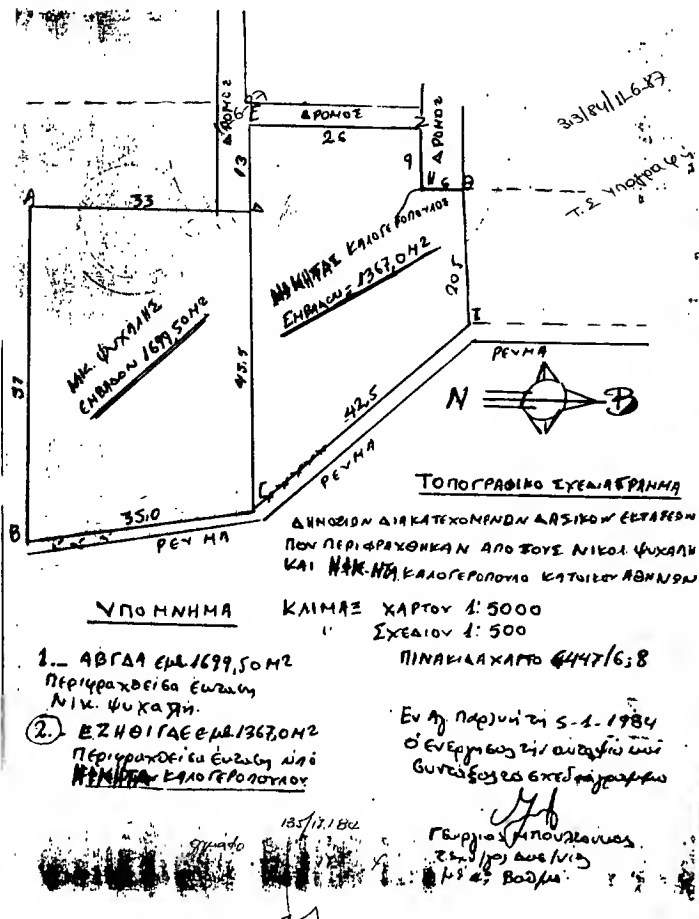 33/84/12.6.87
Τ.Σ Υπογραφή
ΔΡΟΜΟΣ
ΔΡΟΜΟΣ
ΔΡΟΜΟΣ
E
Z
26
13
9
H
6
Θ
A
33
Δ
ΝΙΚ. ΨΥΧΑΛΗΣ
ΕΜΒΑΔΟΝ 1699,50 Μ2
ΚΑΛΟΓΕΡΟΠΟΥΛΟΣ
ΕΜΒΑΔΟΝ = 1367,0 Μ2
20,5
I
37
43,5
42,5
Γ
B
35,0
ΡΕΥΜΑ
ΡΕΥΜΑ
ΡΕΥΜΑ
N
Β
ΤΟΠΟΓΡΑΦΙΚΟ ΣΧΕΔΙΑΓΡΑΜΜΑ
ΔΗΜΟΣΙΩΝ ΔΙΑΚΑΤΕΧΟΜΕΝΩΝ ΔΑΣΙΚΩΝ ΕΚΤΑΣΕΩΝ
ΠΟΥ ΠΕΡΙΦΡΑΧΘΗΚΑΝ ΑΠΟ ΤΟΥΣ ΝΙΚΟΛ. ΨΥΧΑΛΗ
ΚΑΙ ΚΑΛΟΓΕΡΟΠΟΥΛΟ ΚΑΤΟΙΚΟΥ ΑΘΗΝΩΝ
ΥΠΟΜΝΗΜΑ
ΚΛΙΜΑΞ ΧΑΡΤΟΥ 1:5000
" ΣΧΕΔΙΟΥ 1:500
1.- ΑΒΓΔΑ εμβ. 1699,50 Μ2
Περιφραχθείσα έκταση
Νικ. Ψυχαλή.
ΠΙΝΑΚΙΔΑ ΧΑΡΤΟΥ 6447/6;8
2. ΕΖΗΘΙΓΔΕ εμβ. 1367,0 Μ2
Περιφραχθείσα έκταση υπό
ΚΑΛΟΓΕΡΟΠΟΥΛΟΥ
Εν Αγ. Παρ/νή τη 5-1-1984
Ο Ενεργήσας την αυτοψία και
Συντάξας το σχεδιάγραμμα
Γεώργιος
με Δ' Βαθμό
135/17.1.84